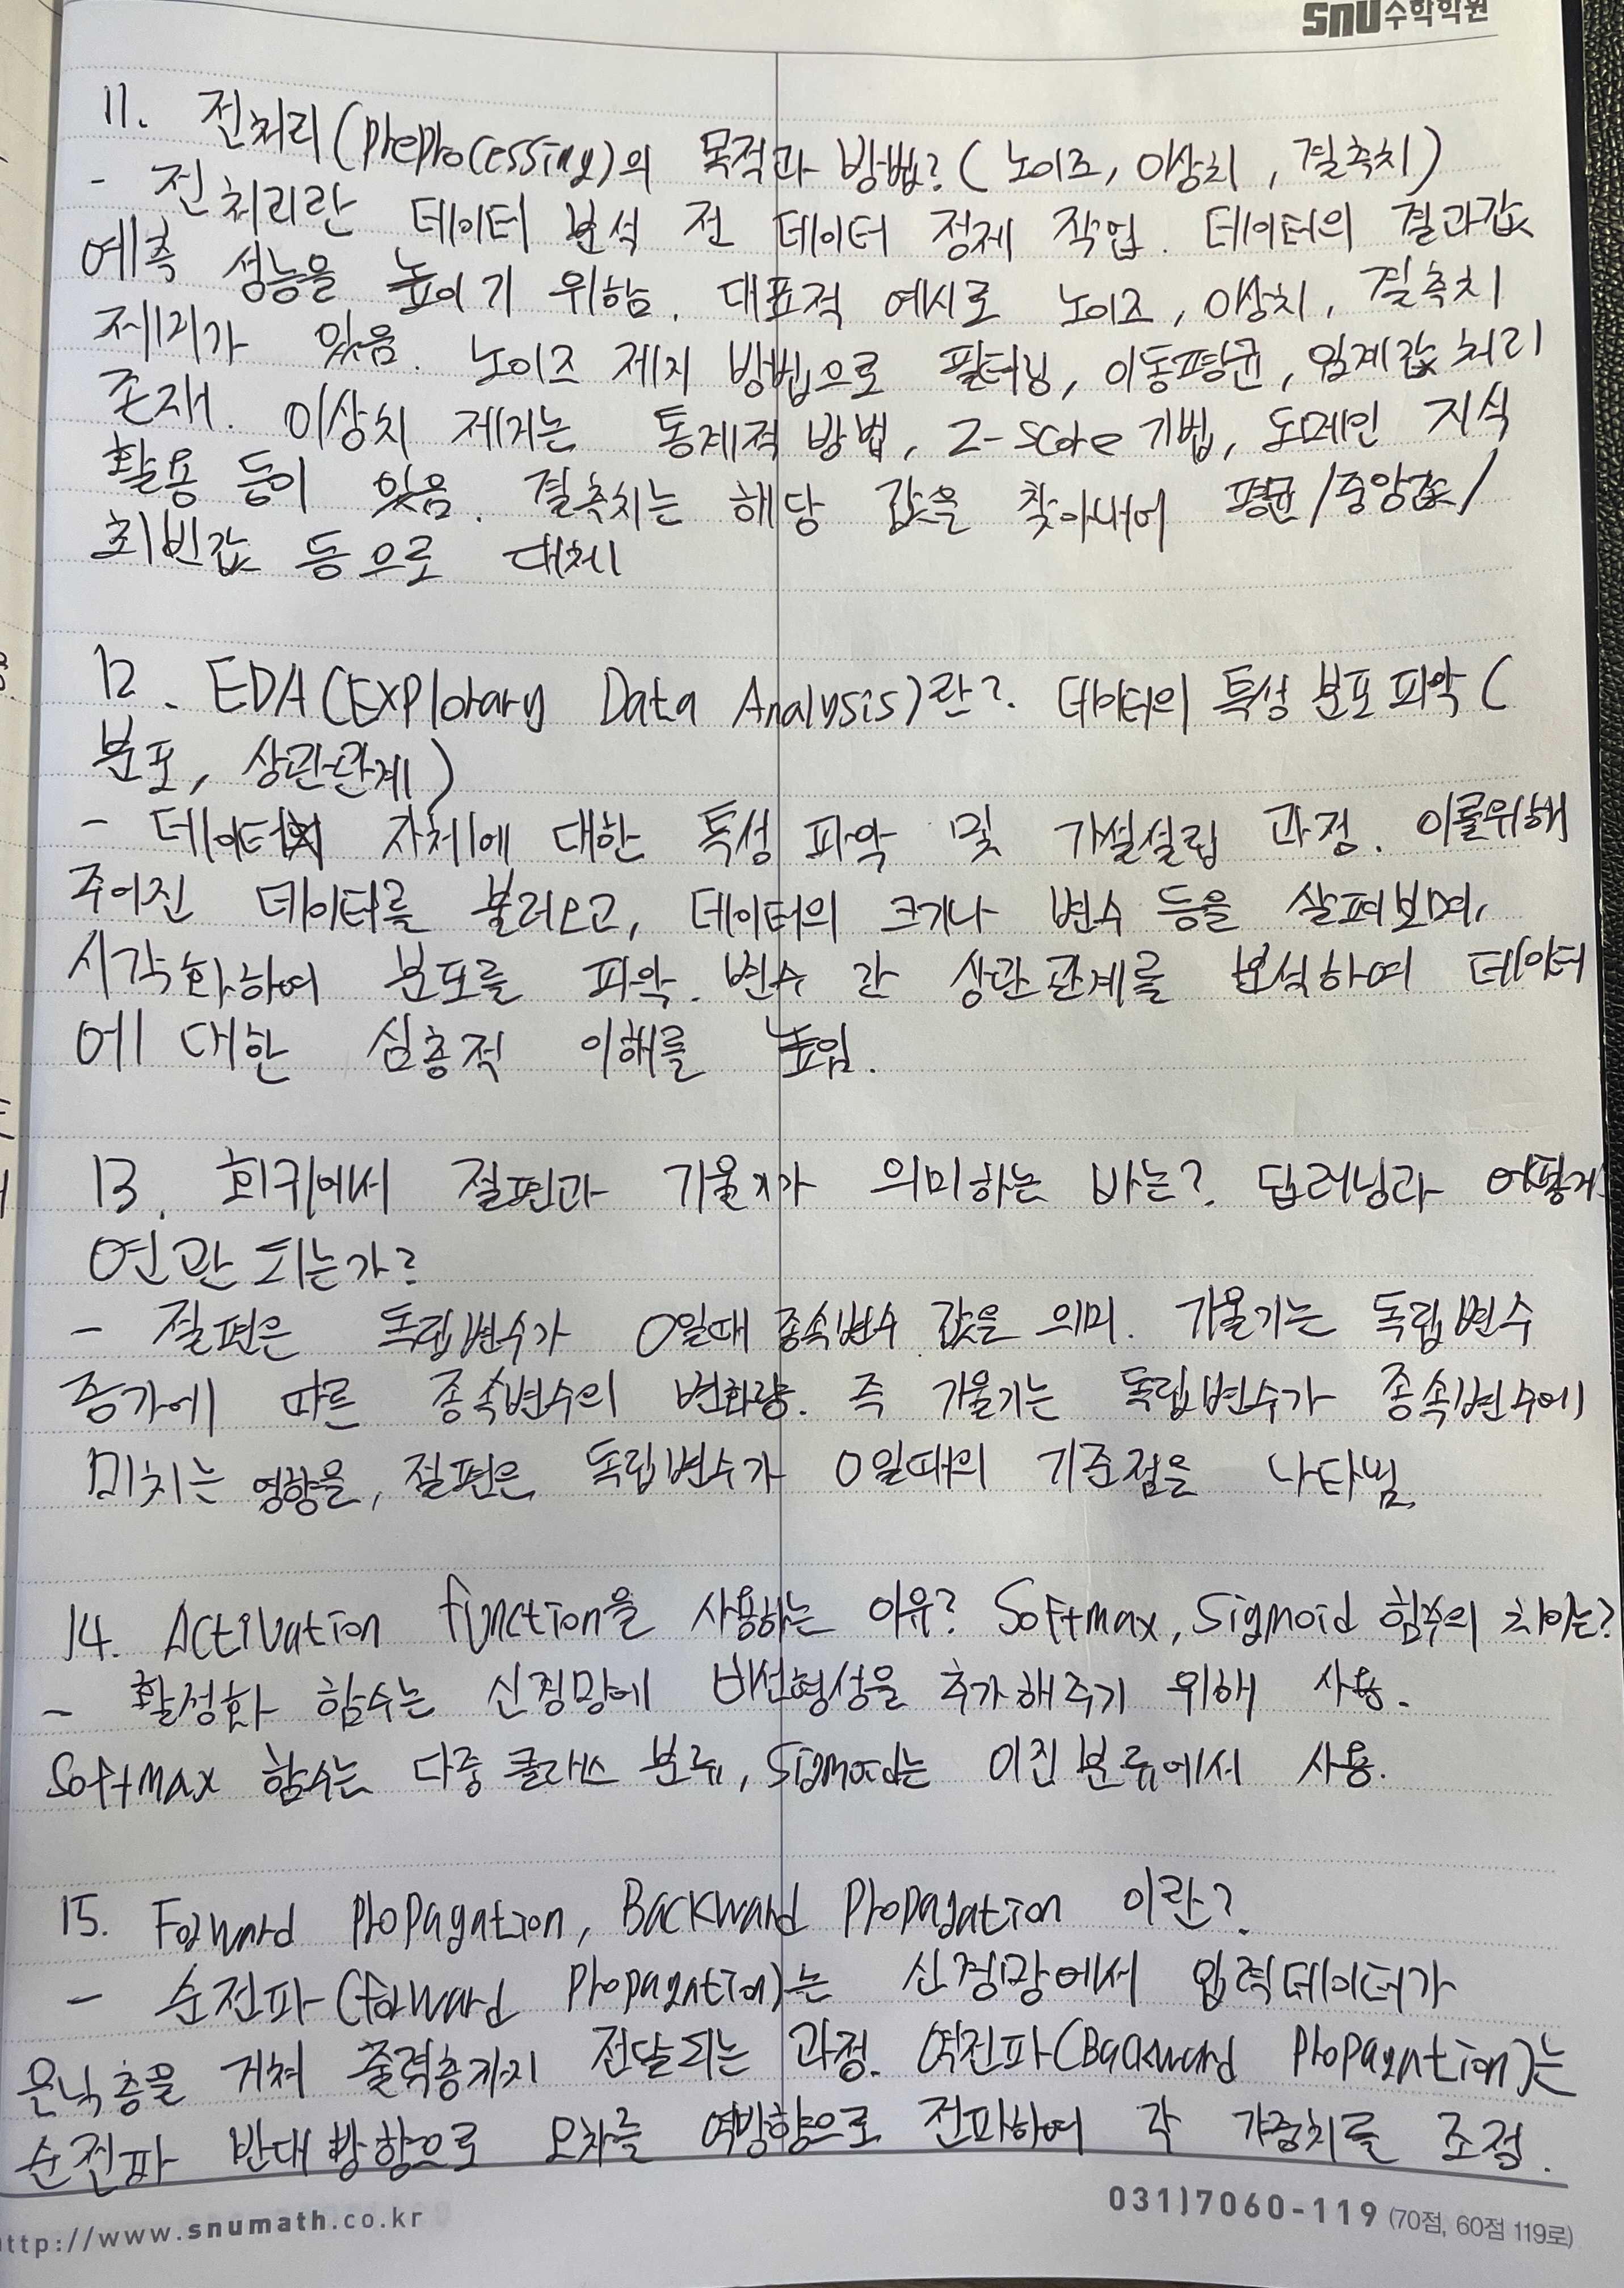 snu수학학원
11. 전처리(Preprocessing)의 목적과 방법? (노이즈, 이상치, 결측치)
- 전처리란 데이터 분석 전 데이터 정제 작업. 데이터의 결과값
예측 성능을 높이기 위함. 대표적 예시로 노이즈, 이상치, 결측치
제거가 있음. 노이즈 제거 방법으로 필터링, 이동평균, 임계값 처리
존재. 이상치 제거는 통계적 방법, Z-score 기법, 도메인 지식
활용 등이 있음. 결측치는 해당 값을 찾아내어 평균/중앙값/
최빈값 등으로 대체
12. EDA(EXPlorary Data Analysis)란? 데이터의 특성 분포 파악(
분포, 상관관계)
- 데이터 자체에 대한 특성 파악 및 가설설립 과정. 이를위해
주어진 데이터를 불러오고, 데이터의 크기나 변수 등을 살펴보며,
시각화하여 분포를 파악. 변수 간 상관관계를 분석하여 데이터
에 대한 심층적 이해를 높임.
13. 회귀에서 절편과 기울기가 의미하는 바는? 딥러닝과 어떻게
연관 되는가?
- 절편은 독립변수가 0일때 종속변수 값을 의미. 기울기는 독립변수
증가에 따른 종속변수의 변화량. 즉 기울기는 독립변수가 종속변수에
미치는 영향을, 절편은 독립변수가 0일때의 기준점을 나타냄.
14. Activation function을 사용하는 이유? Softmax, Sigmoid 함수의 차이는?
- 활성화 함수는 신경망에 비선형성을 추가해주기 위해 사용.
Softmax 함수는 다중 클래스 분류, Sigmoid는 이진 분류에서 사용.
15. Forward Propagation, Backward Propagation 이란?
- 순전파(forward Propagation)는 신경망에서 입력데이터가
은닉층을 거쳐 출력층까지 전달되는 과정. 역전파(Backward Propagation)는
순전파 반대 방향으로 오차를 역방향으로 전파하여 각 가중치를 조정.
http://www.snumath.co.kr
031)7060-119 (70점, 60점 119로)